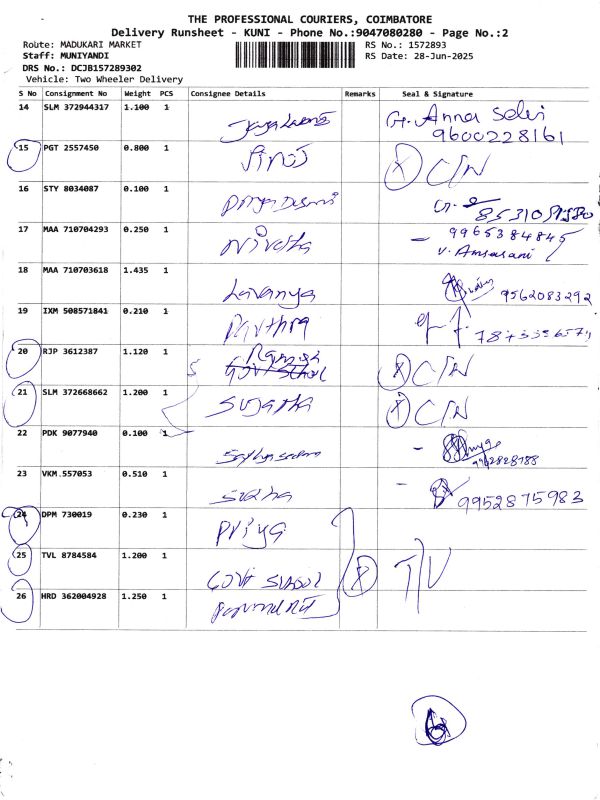 THE PROFESSIONAL COURIERS, COIMBATORE
Delivery Runsheet - KUNI - Phone No.:9047080280 - Page No.:2
Route: MADUKARI MARKET
RS No.: 1572893
Staff: MUNIYANDI
RS Date: 28-Jun-2025
DRS No.: DCJB157289302
Vehicle: Two Wheeler Delivery
S No Consignment No Weight PCS Consignee Details Remarks Seal & Signature
14 SLM 372944317 1.100 1 G. Anna Selvi
9600228161
15 PGT 2557450 0.800 1 X C/N
16 STY 8034087 0.100 1
17 MAA 710704293 0.250 1 Nivetha 9965384845
18 MAA 710703618 1.435 1 Lavanya 9562083292
19 IXM 508571841 0.210 1 Pavithra
20 RJP 3612387 1.120 1 Ramesh X C/N
21 SLM 372668662 1.200 1 Sujatha X C/N
22 PDK 9077940 0.100 1
23 VKM 557053 0.510 1 Sudha 9952875983
24 DPM 730019 0.230 1 Priya
25 TVL 8784584 1.200 1 Govt School X T/V
26 HRD 362004928 1.250 1